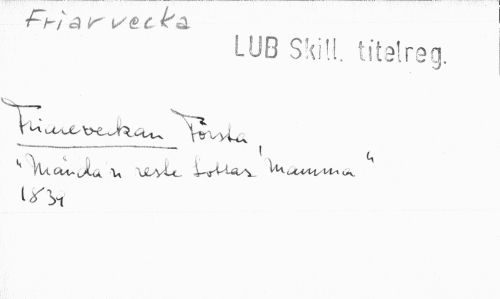 Friarvecka
LUB Skill. titelreg.
Friareveckan Första,
"Månda'n reste Lottas Mamma"
1834